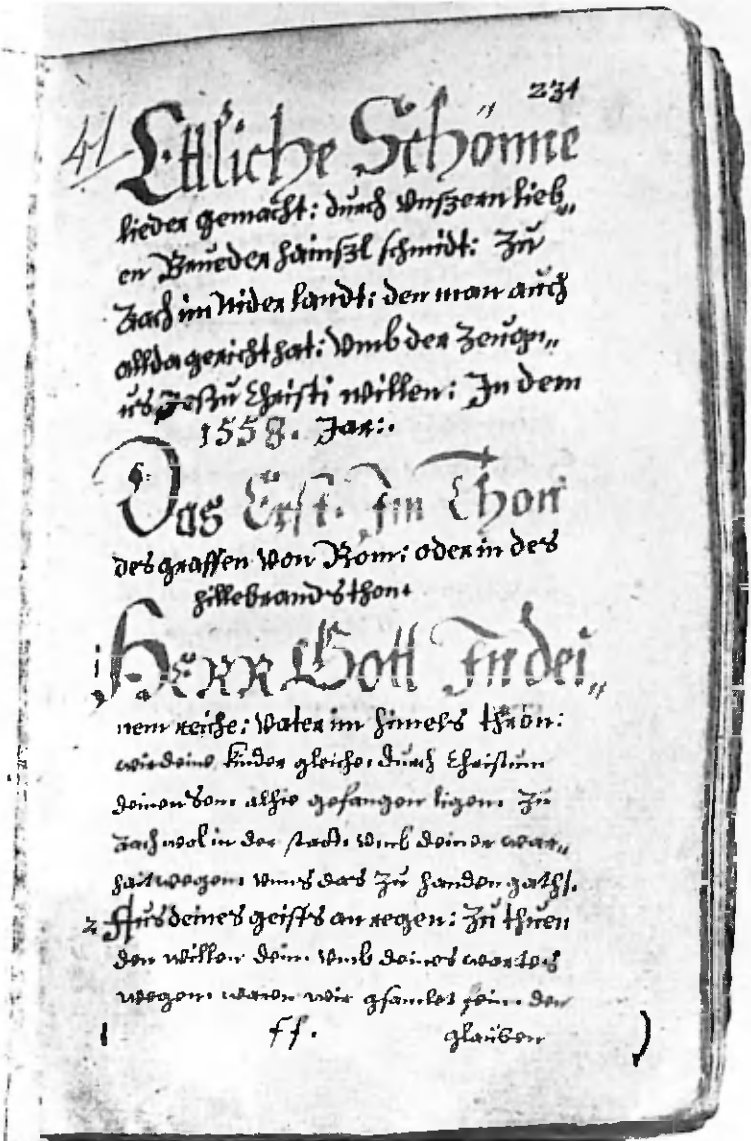 234
41 Ettliche Schönne
lieder gemacht: durch vnszern lieb„
en Brueder hainszl schmidt: Zu
Aach im Niderlandt: den man auch
allda gericht hat: Vmb der Zeugn„
us Jesu Christi willen: In dem
1558. Jar:.
Das Erst. Im Thon
des graffen von Rom: oder in des
hillebrands thon.
1 HERR Gott In dei„
nem reiche: Vater im himels thron:
wir deine kinder gleiche. durch Christum
deinen Son. alhie gefangen ligen. Zu
Aach wol in der stadt. Vmb deiner war„
hait wegen. vnns das zu handen gath.
2 Aus deines geists an regen: Zu thuen
den willen dein. Vmb deines wortes
wegen. waren wir gsamlet fein. den
ff. glauben